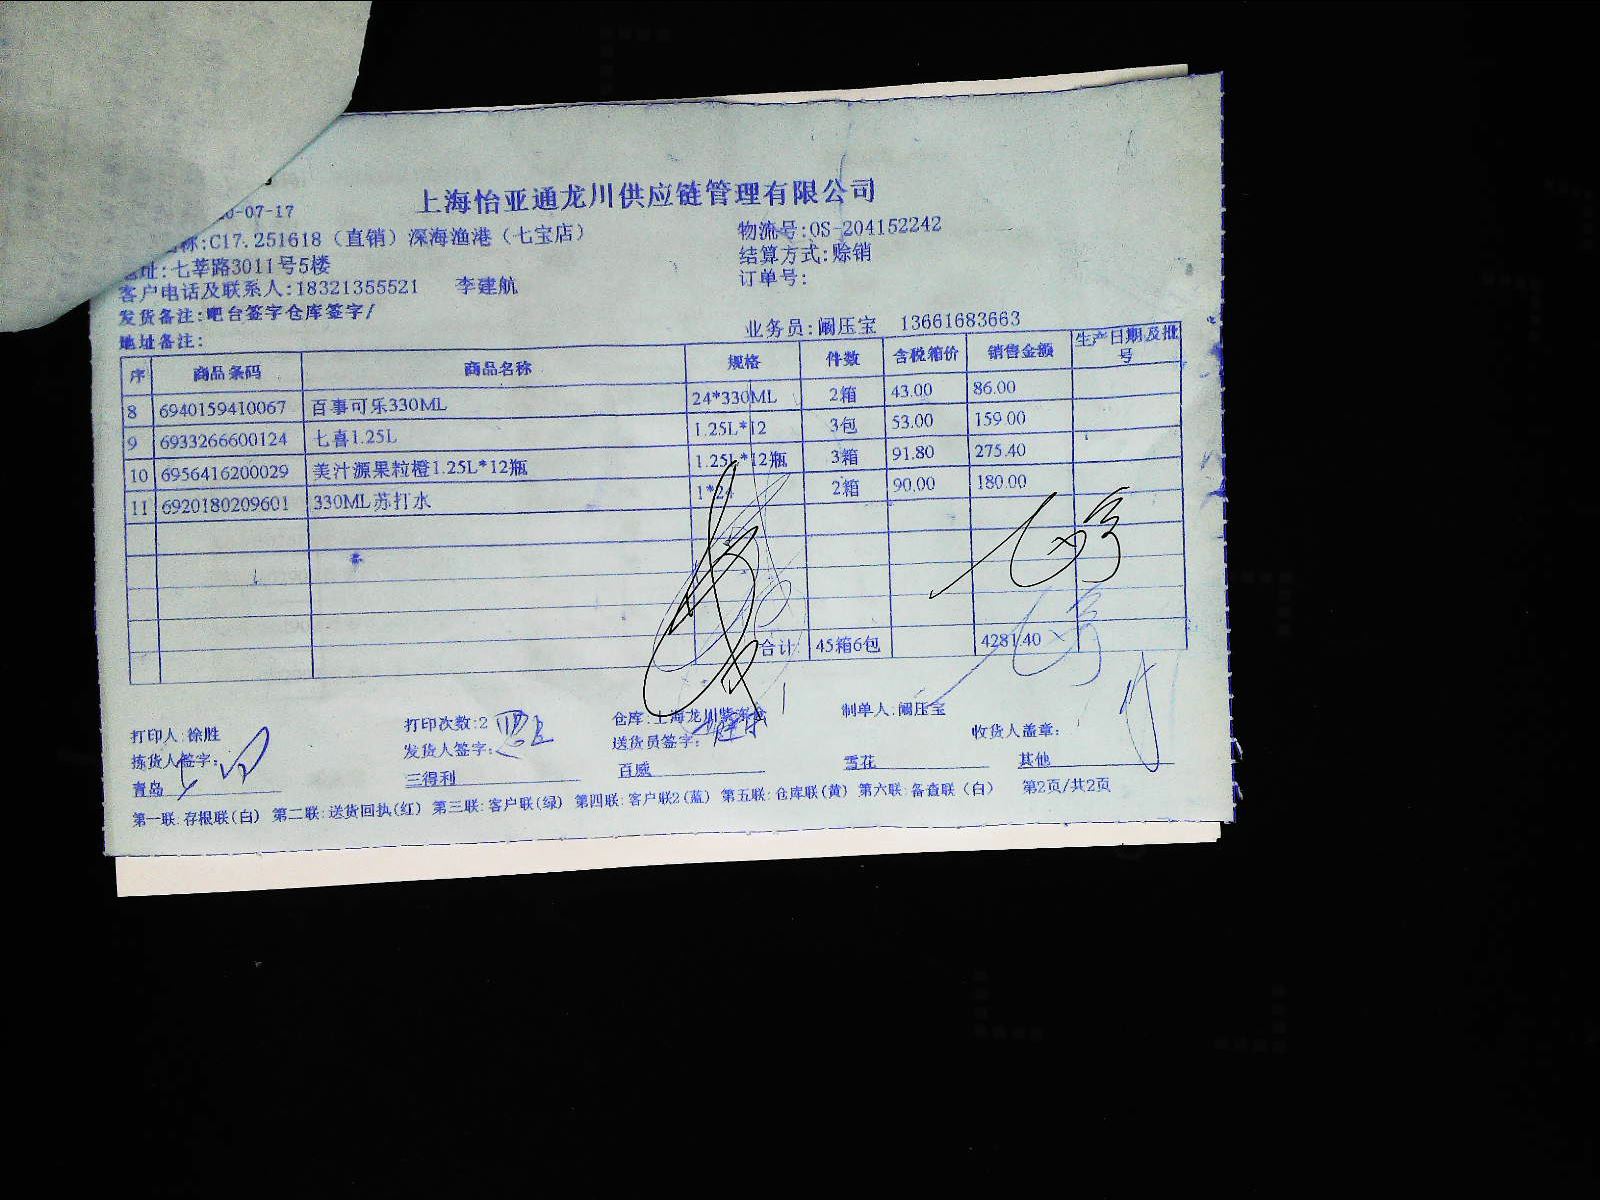 上海怡亚通龙川供应链管理有限公司
0-07-17
称:C17.251618（直销）深海渔港（七宝店）
物流号:OS-204152242
址:七莘路3011号5楼
结算方式:赊销
客户电话及联系人:18321355521 李建航
订单号:
发货备注:吧台签字仓库签字/
地址备注:
业务员:阚压宝 13661683663
序 商品条码 商品名称 规格 件数 含税箱价 销售金额 生产日期及批号
8 6940159410067 百事可乐330ML 24*330ML 2箱 43.00 86.00
9 6933266600124 七喜1.25L 1.25L*12 3包 53.00 159.00
10 6956416200029 美汁源果粒橙1.25L*12瓶 1.25L*12瓶 3箱 91.80 275.40
11 6920180209601 330ML苏打水 1*24 2箱 90.00 180.00
合计 45箱6包 4281.40
打印人:徐胜 打印次数:2 仓库:上海龙川 制单人:阚压宝
拣货人签字: 发货人签字: 送货员签字: 收货人盖章:
青岛 三得利 百威 雪花 其他
第一联:存根联(白) 第二联:送货回执(红) 第三联:客户联(绿) 第四联:客户联2(蓝) 第五联:仓库联(黄) 第六联:备查联（白） 第2页/共2页